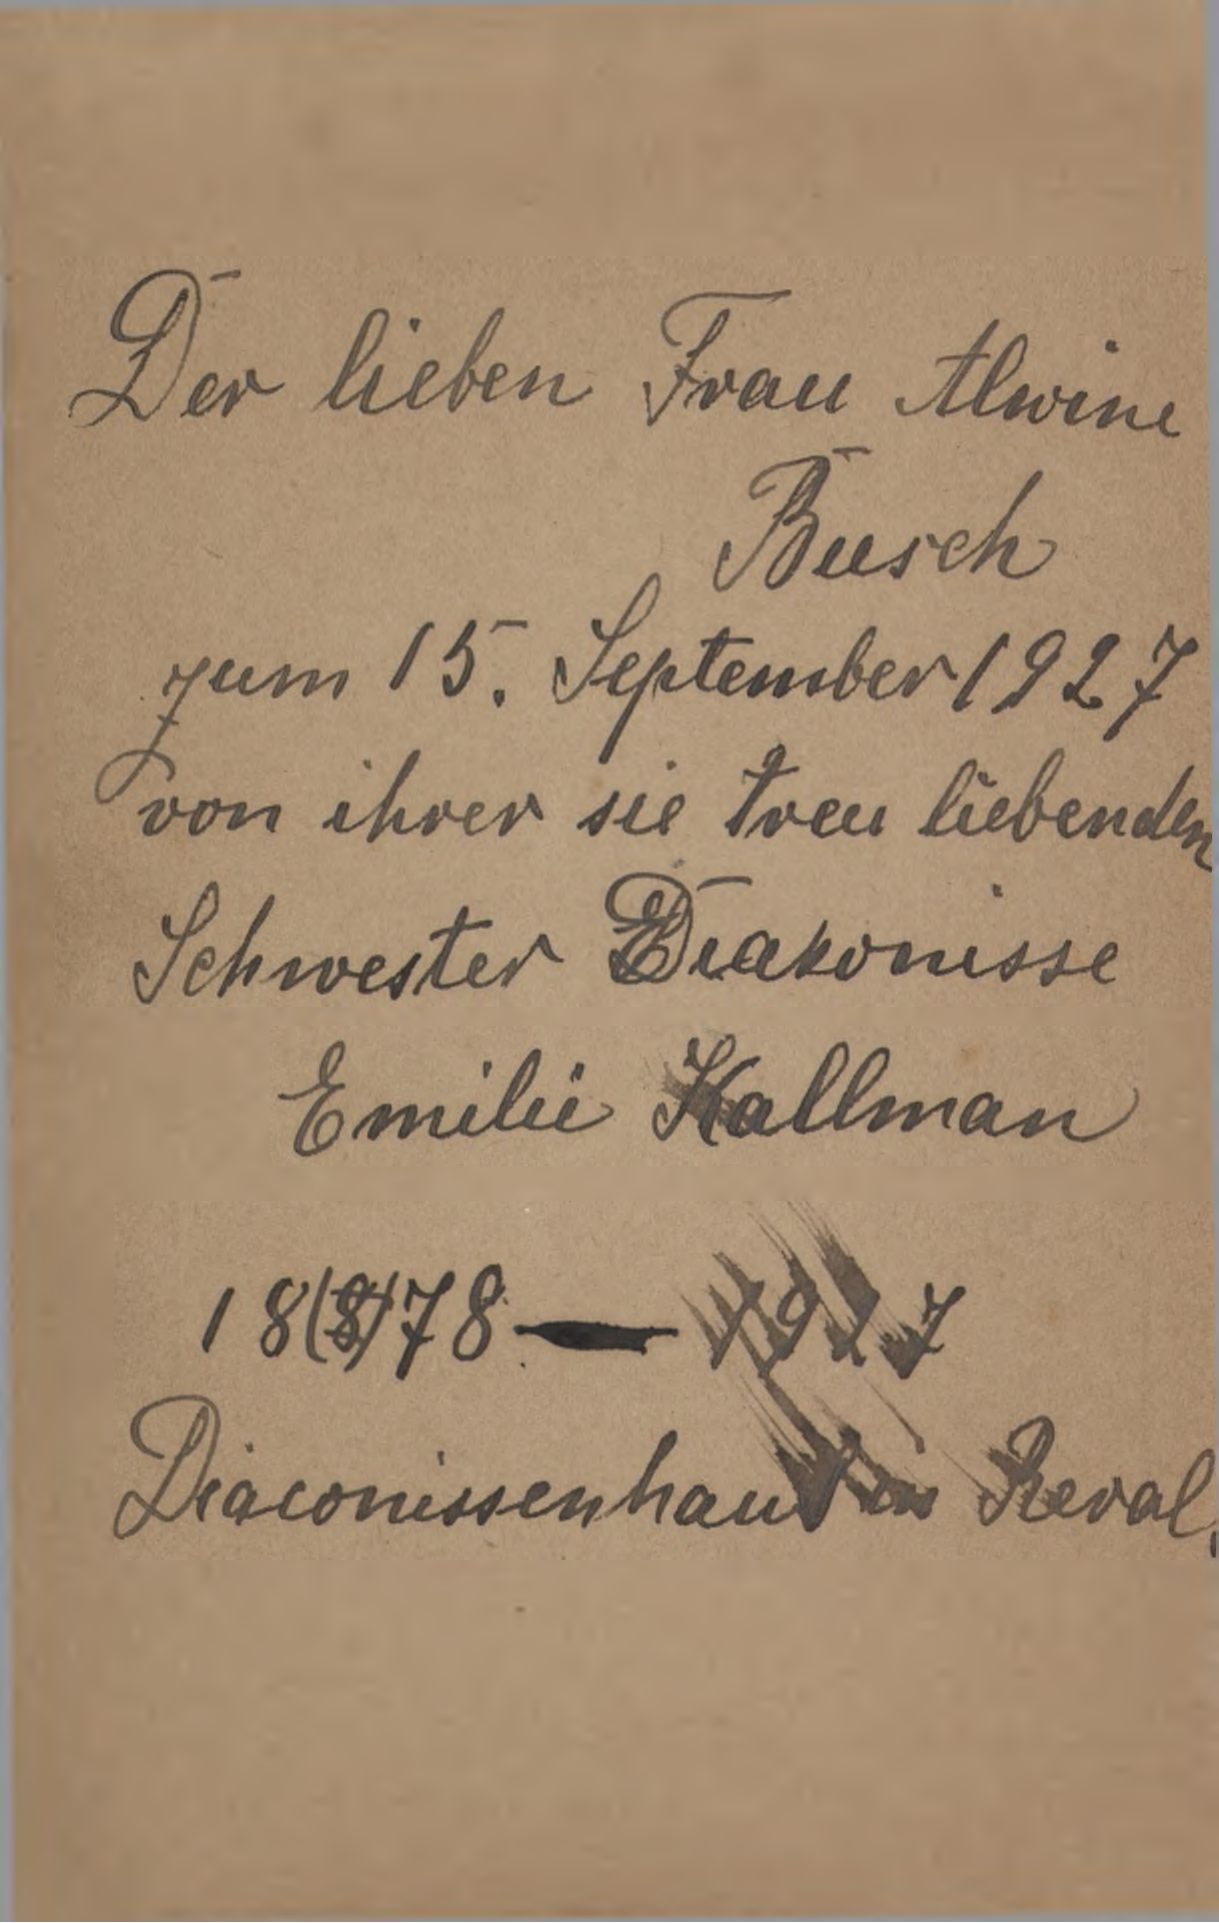 Der lieben Frau Alwine
Busch
zum 15. September 1927
von ihrer sie treu liebenden
Schwester Diakonisse
Emilie Kallman
18(8)78 — 1927
Diaconissenhaus in Reval.